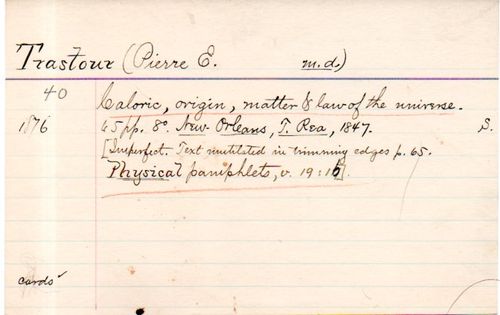 Trastour (Pierre E. m.d.)
40
Caloric, origin, matter & law of the universe.
1876
65 pp. 8º. New Orleans, T. Rea, 1847.
S.
[Imperfect. Text mutilated in trimming edges p. 65.
Physical pamphlets, v. 19:16].
cards✓